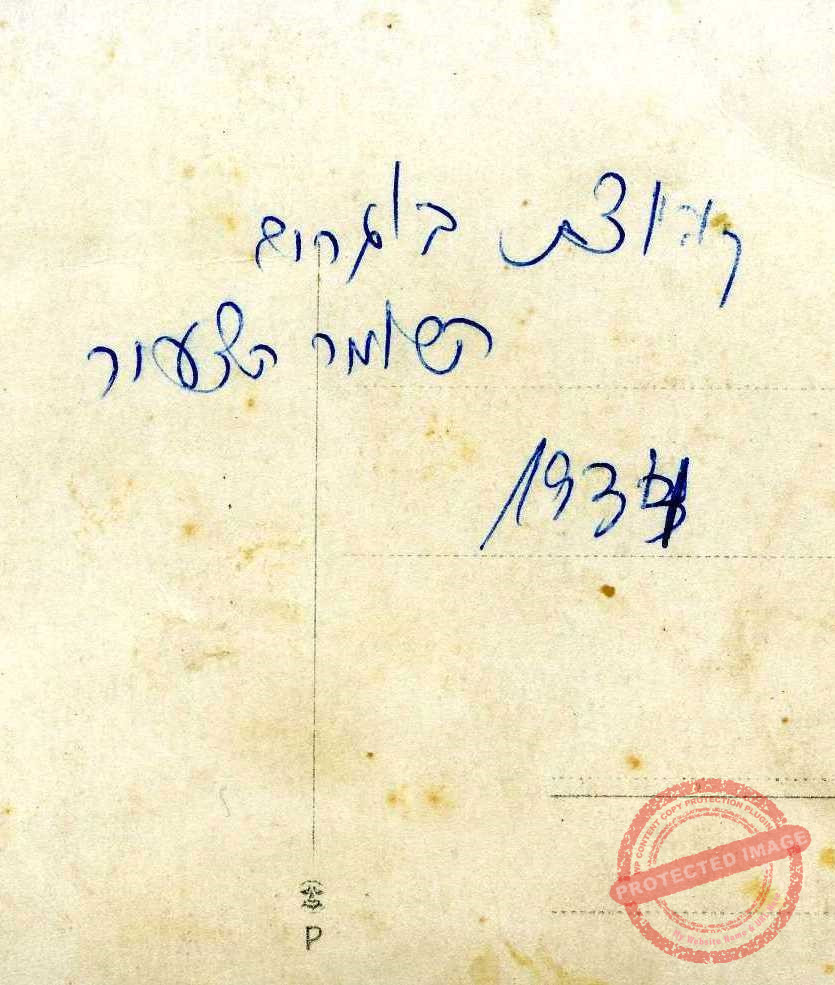 קבוצת
השומר הצעיר
1934
WP CONTENT COPY PROTECTION PLUGIN
PROTECTED IMAGE
My Website Name &
P